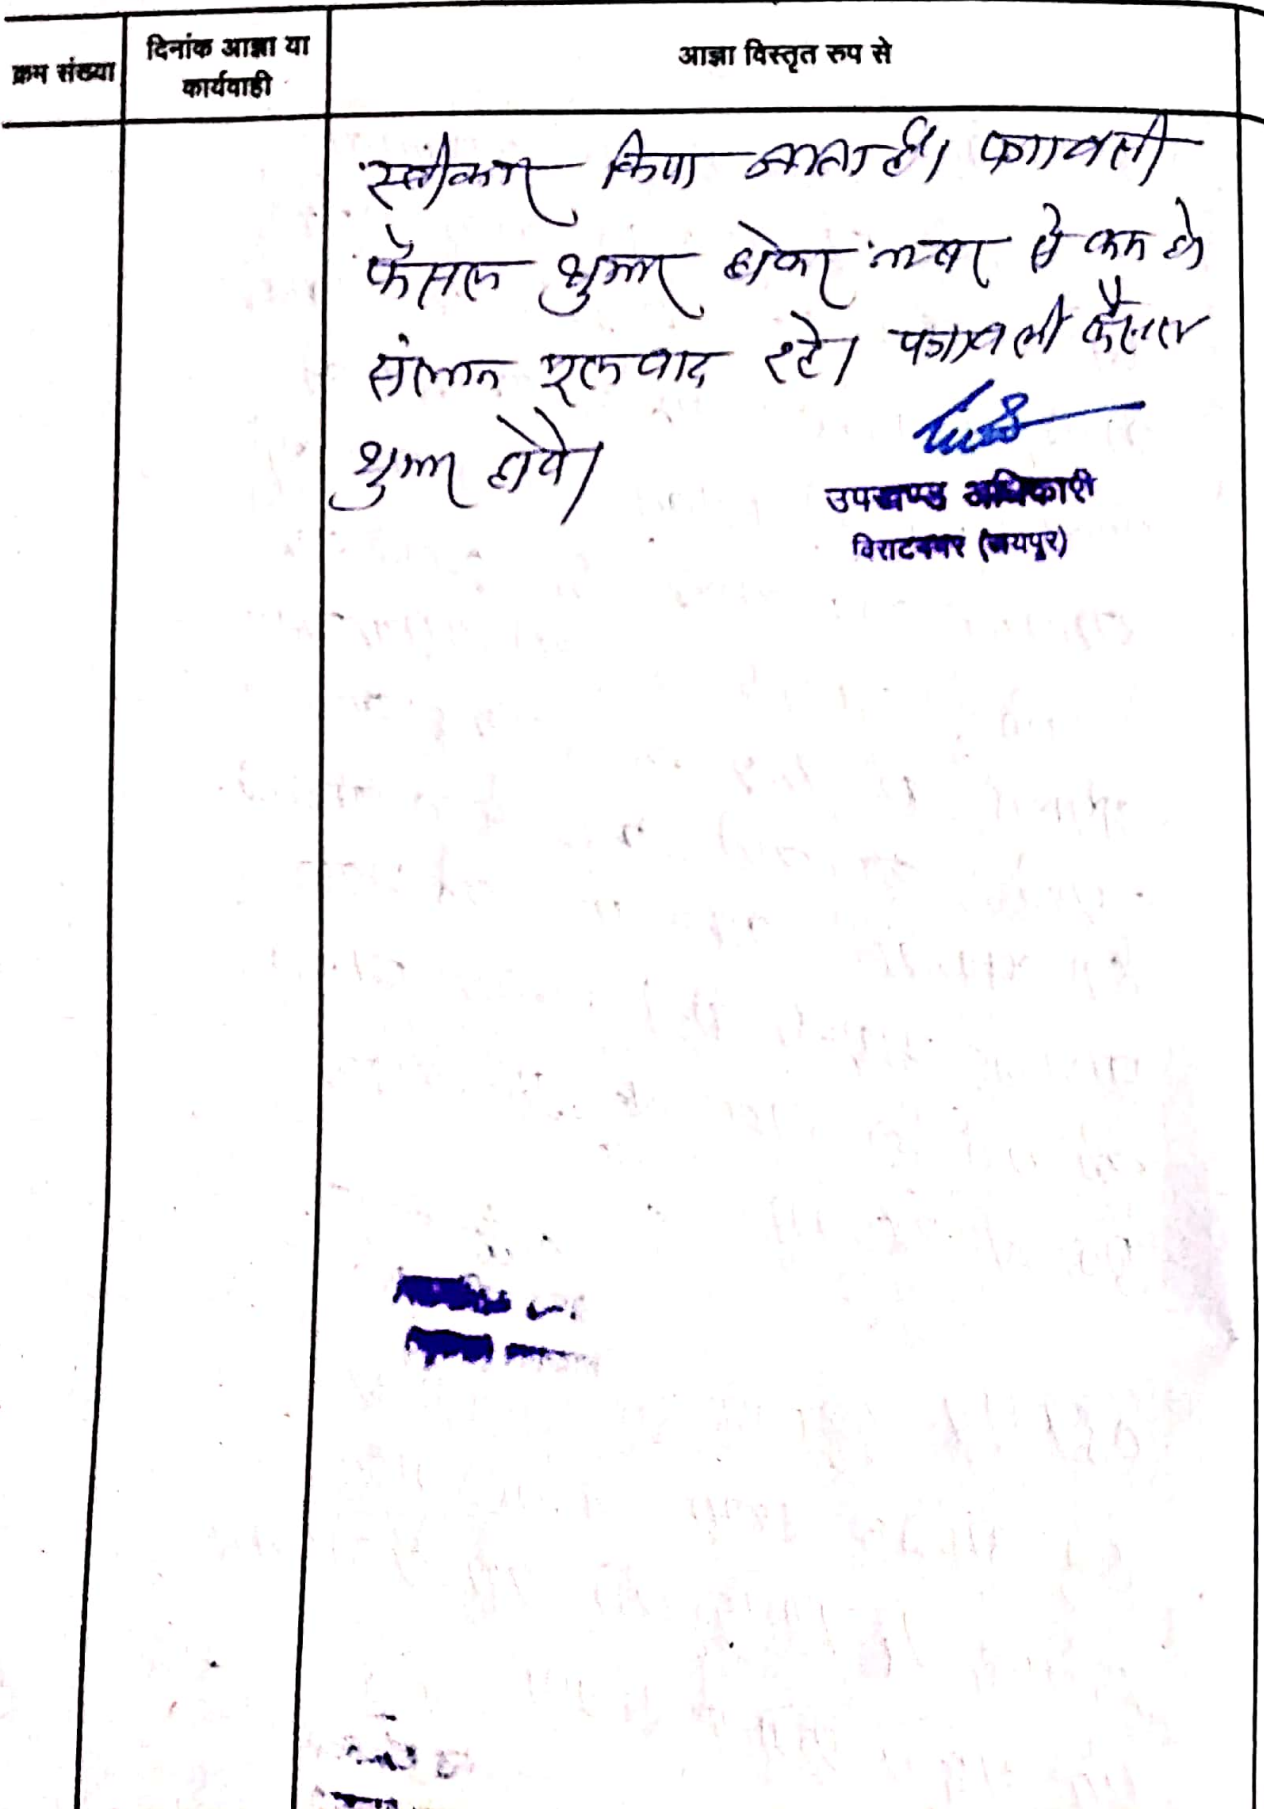 क्रम संख्या
दिनांक आज्ञा या
कार्यवाही
आज्ञा विस्तृत रुप से
स्वीकार किया जाता है। पत्रावली
फैसल शुमार होकर नम्बर से कम हो
संलग्न मूलवाद रहे। पत्रावली फैसल
शुमार होवे।
उपखण्ड अधिकारी
विराटनगर (जयपुर)